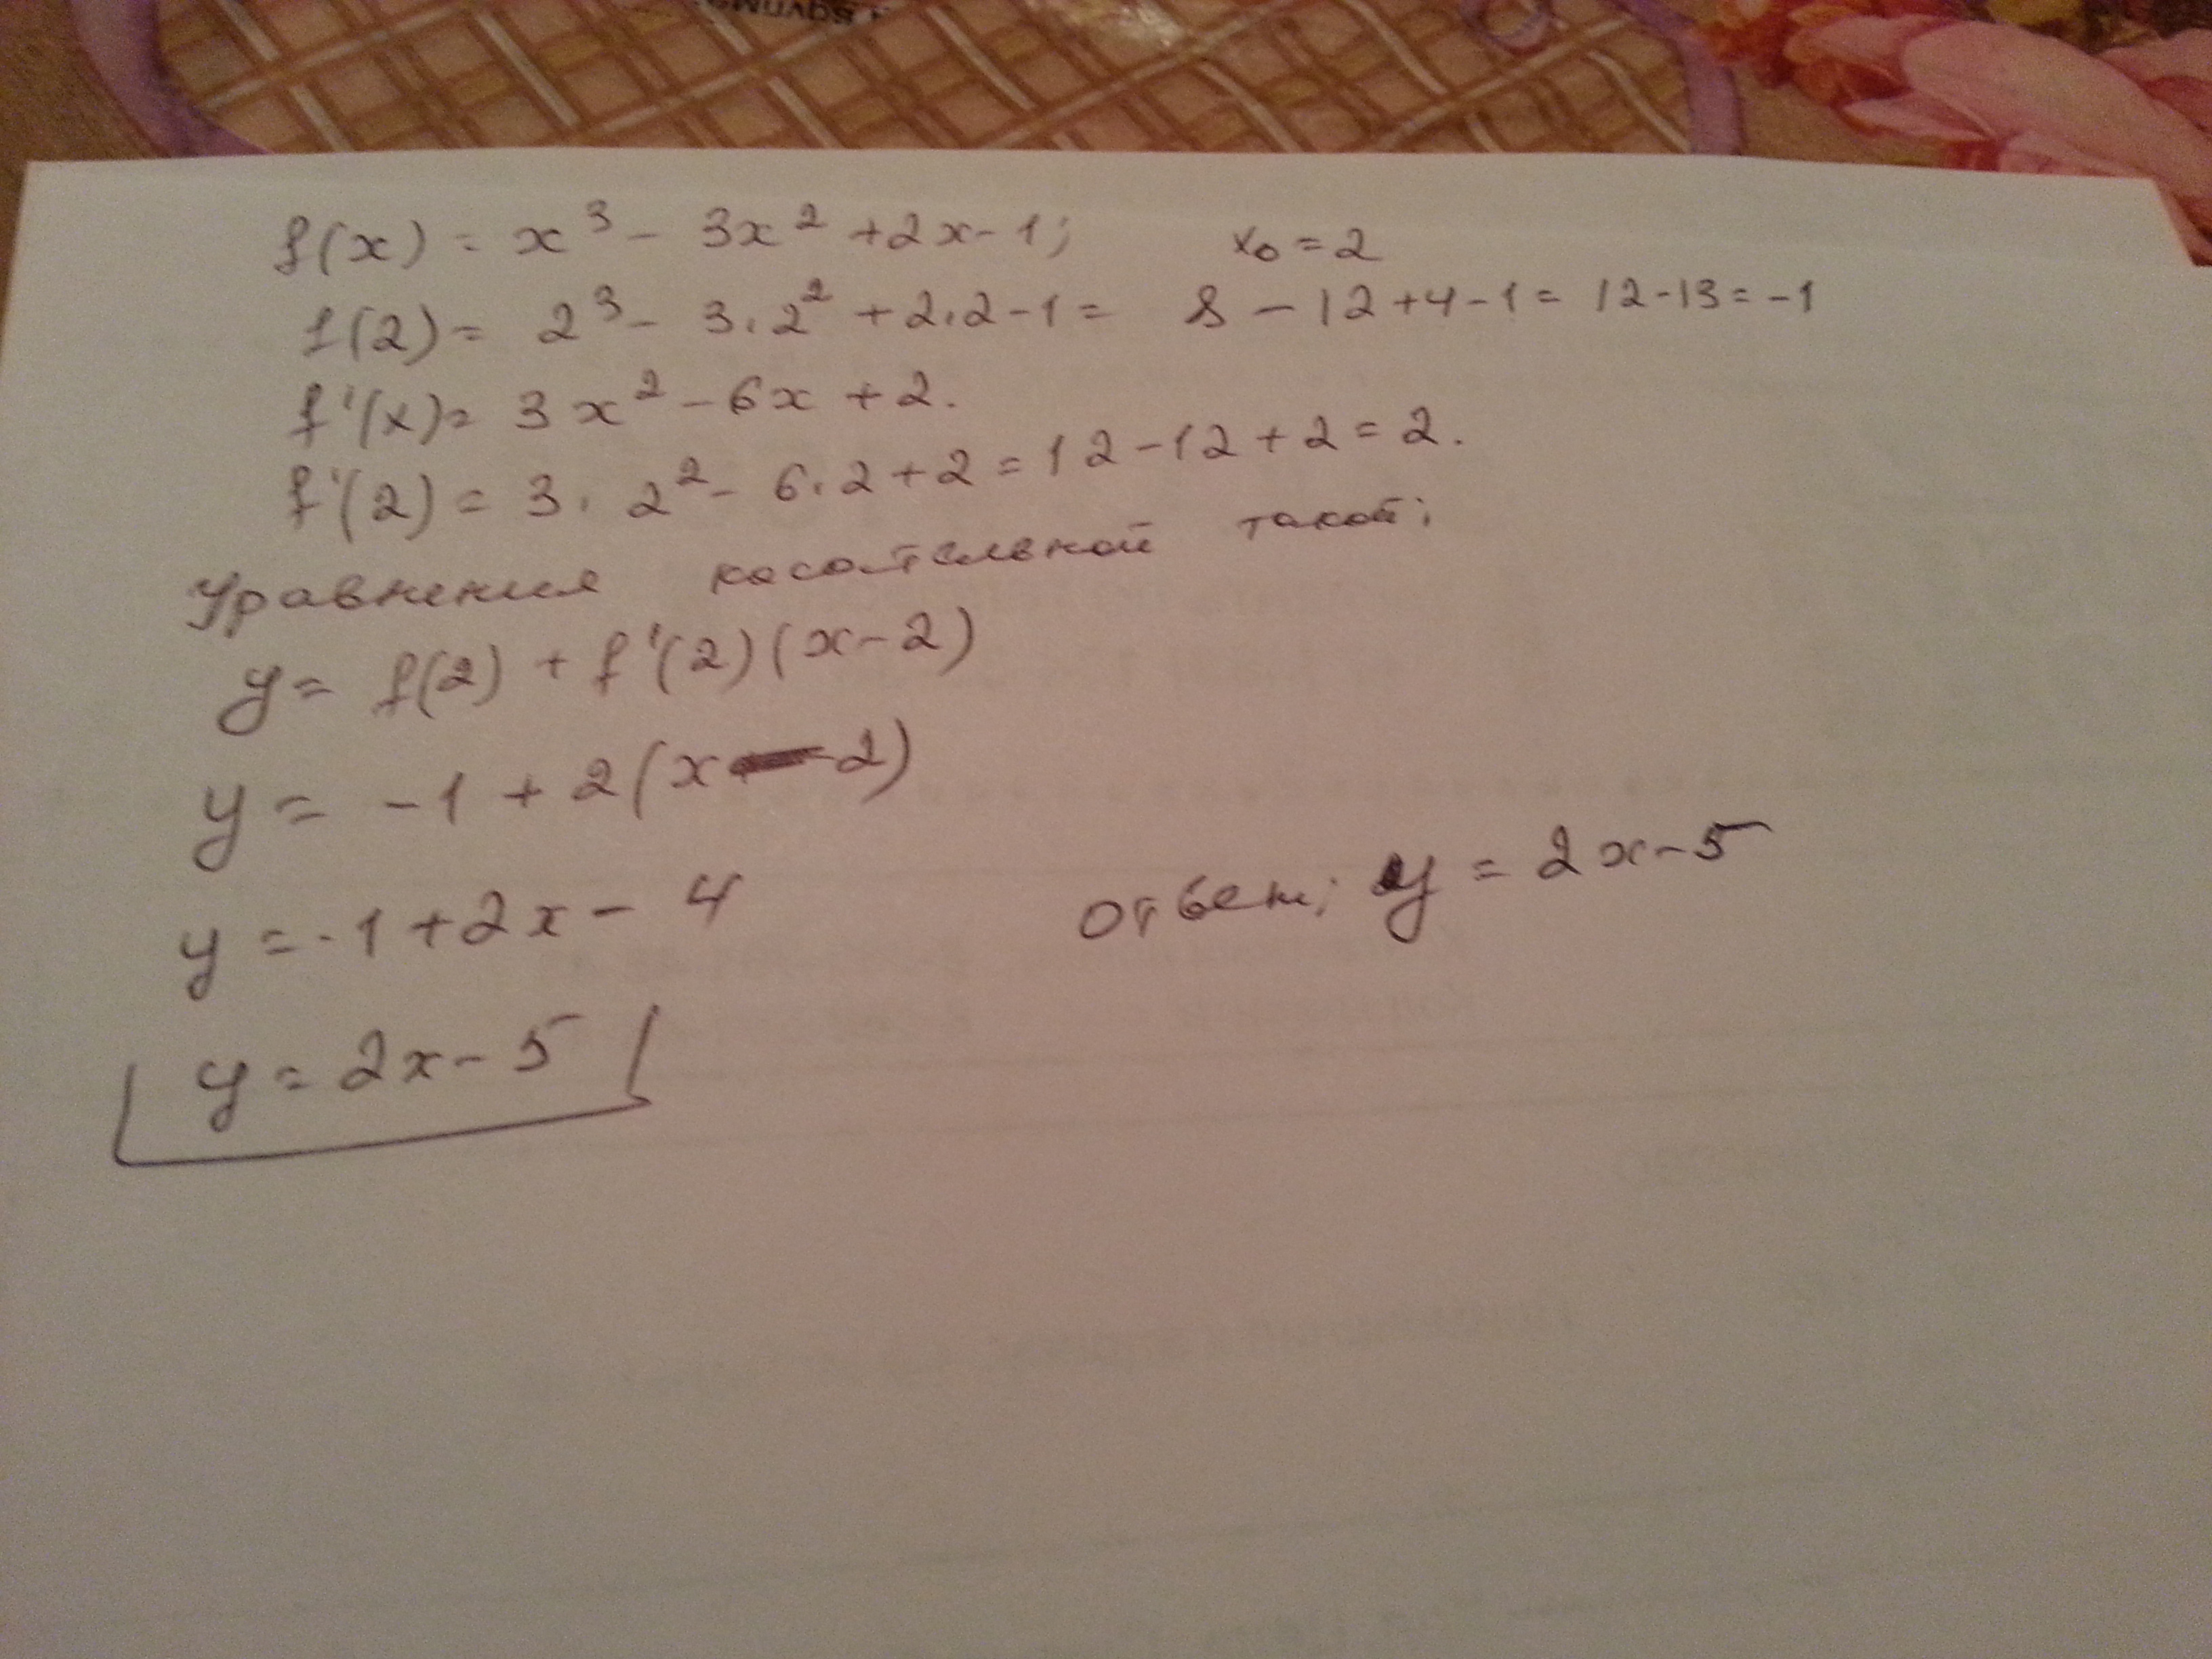 f(x) = x³ - 3x² + 2x - 1; x₀ = 2
f(2) = 2³ - 3·2² + 2·2 - 1 = 8 - 12 + 4 - 1 = 12 - 13 = -1
f'(x) = 3x² - 6x + 2.
f'(2) = 3·2² - 6·2 + 2 = 12 - 12 + 2 = 2.
Уравнения касательной такой:
y = f(2) + f'(2)(x - 2)
y = -1 + 2(x - 2)
y = -1 + 2x - 4
Ответ: y = 2x - 5
y = 2x - 5